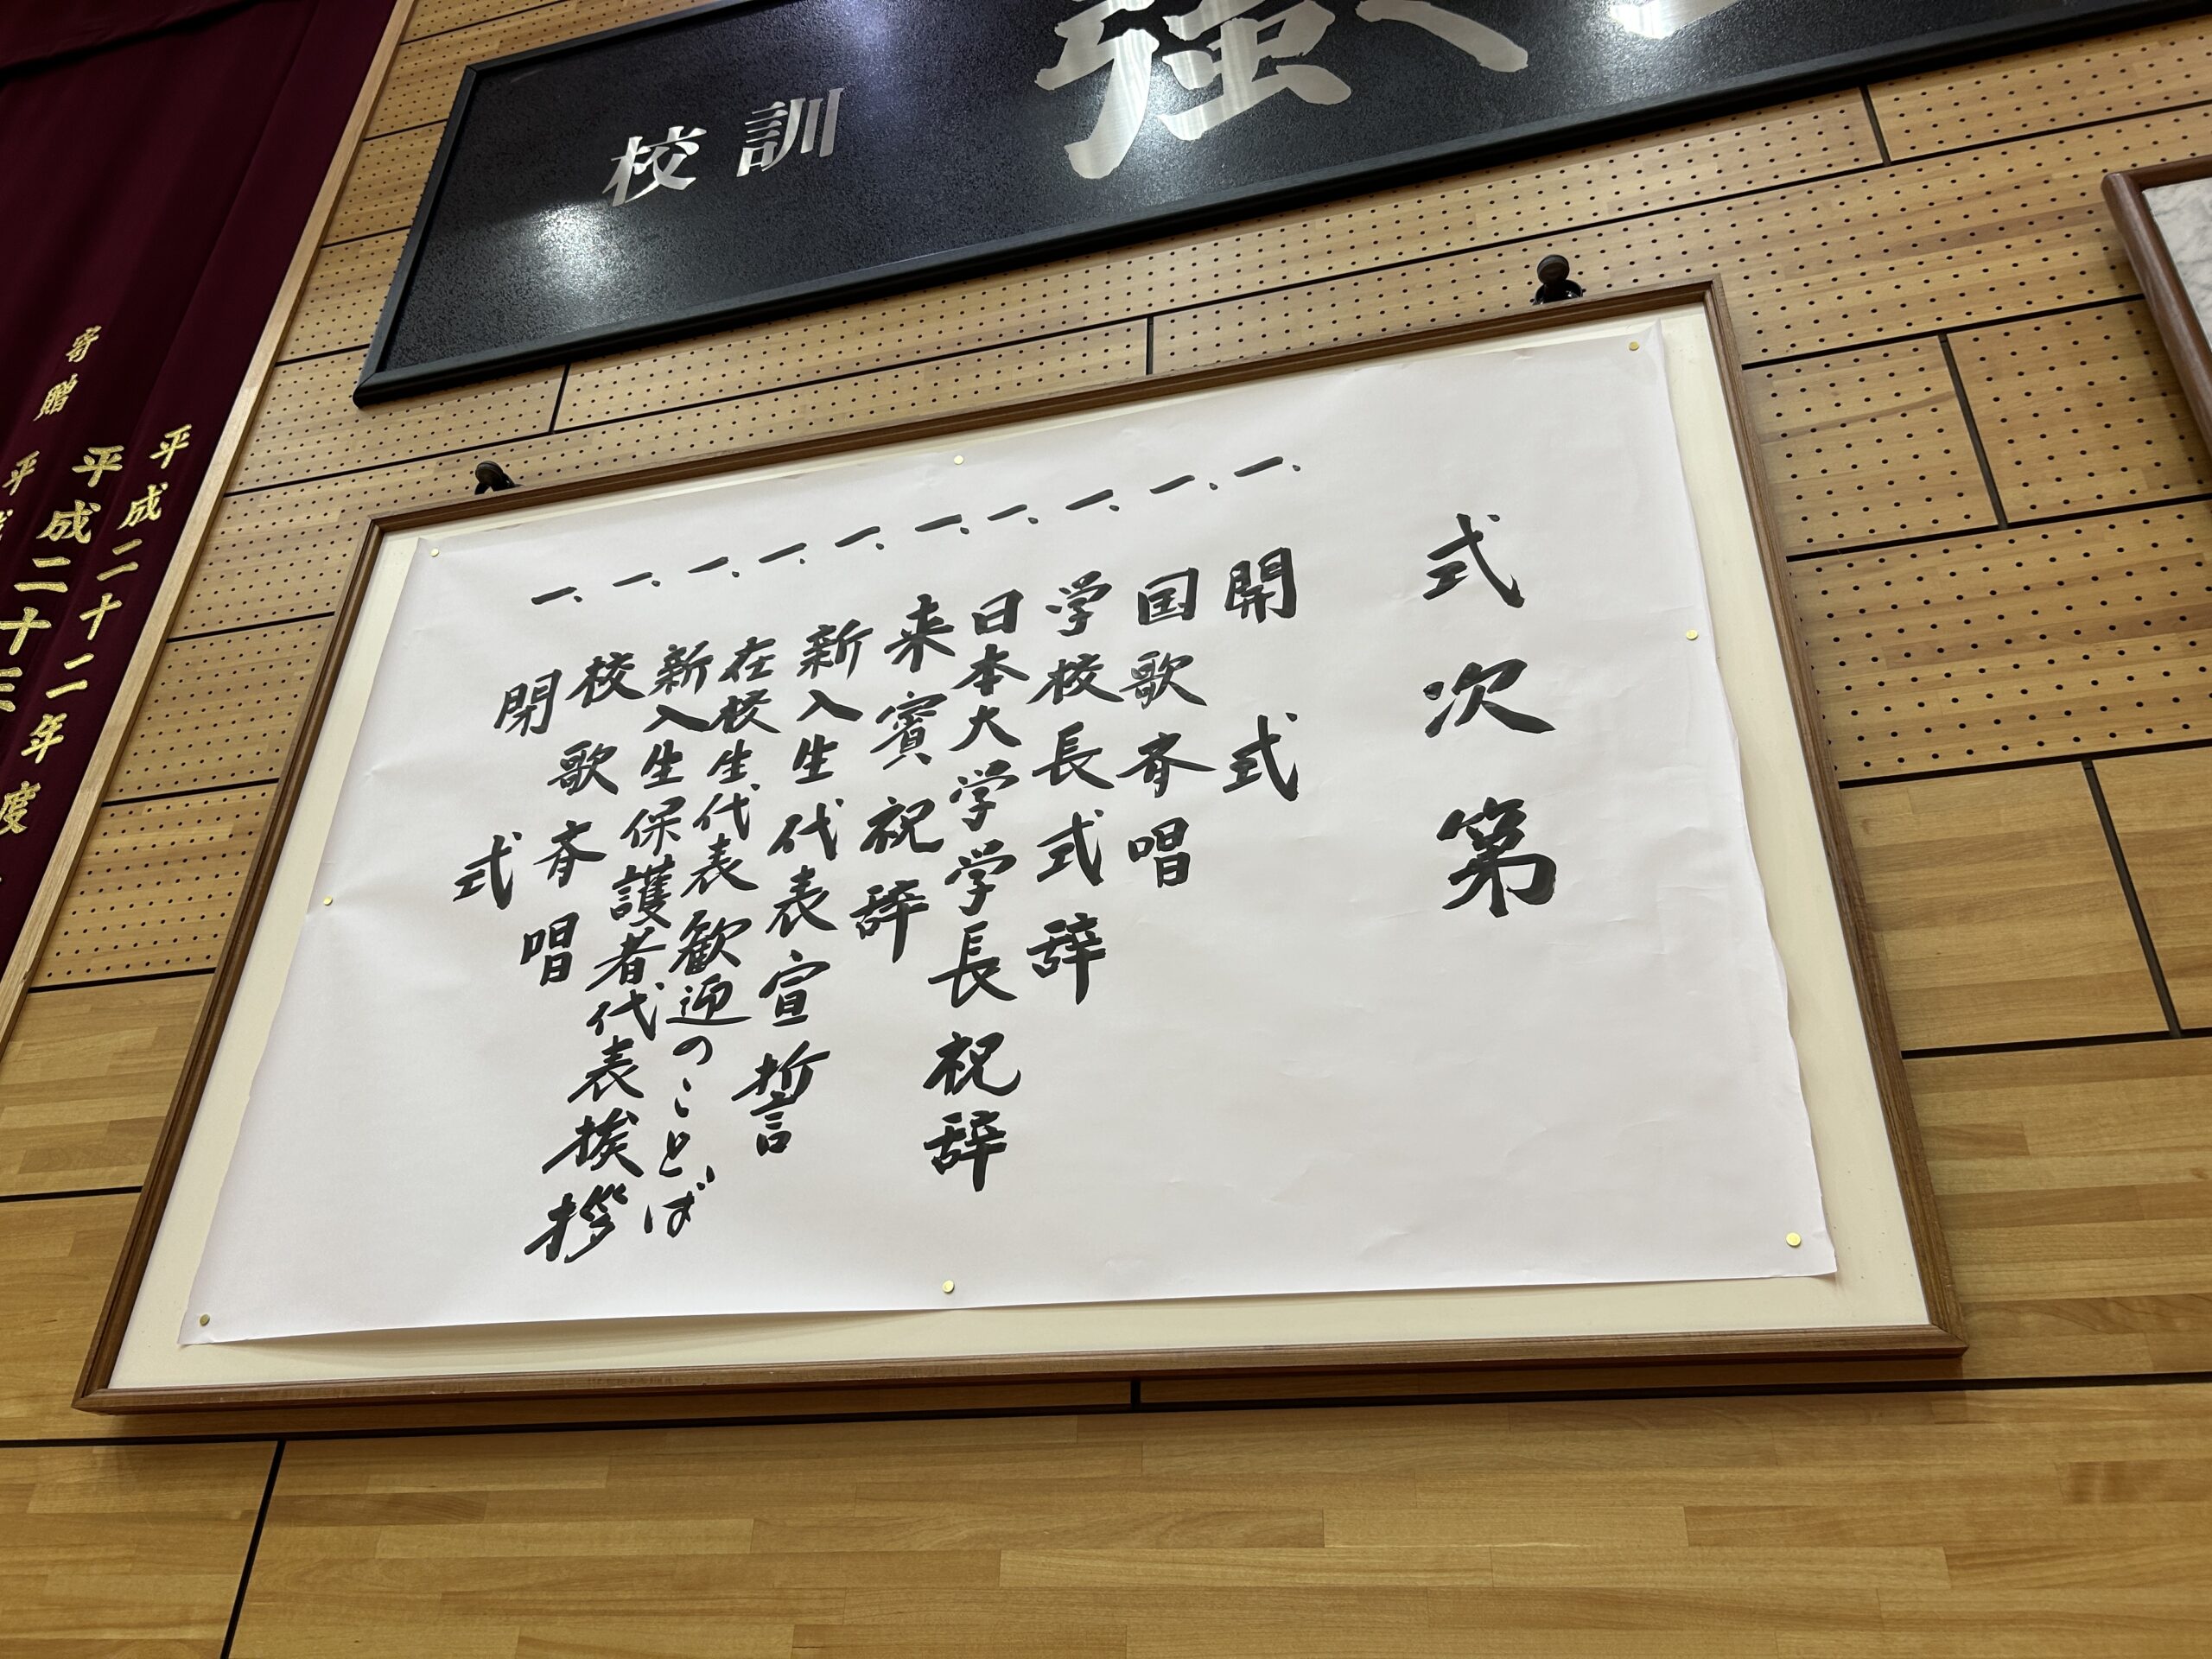 強く
校訓
式次第
一、開式
一、国歌斉唱
一、学校長式辞
一、日本大学学長祝辞
一、来賓祝辞
一、新入生代表宣誓
一、在校生代表歓迎のことば
一、新入生保護者代表挨拶
一、校歌斉唱
一、閉式
平成二十二年度
平成二十三
寄贈